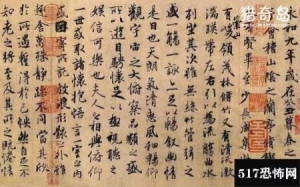 猎奇岛
和九年歲在癸丑暮春之
會稽山陰之蘭亭脩稧
羣賢畢至少長咸集此
有崇山峻領茂林脩竹又有清流激
湍暎帶左右引以為流觴曲水
列坐其次雖無絲竹管弦之
盛一觴一詠亦足以暢敘幽情
是日也天朗氣清惠風和暢仰
觀宇宙之大俯察品類之盛
所以遊目騁懷足以極視聽之
娛信可樂也夫人之相與俯仰
一世或取諸懷抱悟言一室之內
或因寄所託放浪形骸之外雖
趣舍萬殊靜躁不同當其欣
於所遇蹔得於己怏然自足不
知老之將至及其所之既惓情
517恐怖网